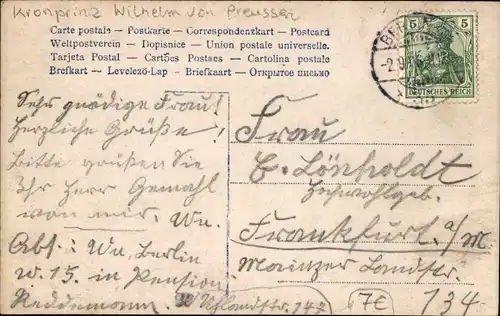 Kronprinz Wilhelm von Preussen
Carte postale — Postkarte — Correspondenzkart — Postcard
Weltpostverein — Dopisnice — Union postale universelle.
Tarjeta Postal — Cartões Postaes — Cartolina postale
Brefkart — Levelező-Lap — Briefkaart — Открытое письмо
5 5
DEUTSCHES REICH
BERLIN
Sehr gnädige Frau!
Herzliche Grüße!
Bitte grüßen Sie
Ihr Herr Gemahl
von mir. Wu.
Abs: Wu, Berlin
W. 15. in Pension
Uhlandstr. 147
Frau
E. Lönholdt
Hochwohlgeb.
Frankfurt a/M.
Mainzer Landstr.
134
7€